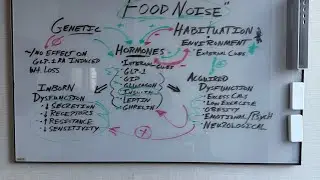 "FOOD NOISE"
GENETIC
HABITUATION
ENVIRONMENT
• EXTERNAL CUES
HORMONES
NO EFFECT ON
GLP-1 RA INDUCED
WT. LOSS
• INTERNAL CUES
• GLP-1
• GIP
• GLUCAGON
• INSULIN
• LEPTIN
• GHRELIN
INBORN
DYSFUNCTION
• ↓ SECRETION
• ↓ RECEPTORS
• ↑ RESISTANCE
• ↓ SENSITIVITY
ACQUIRED
DYSFUNCTION
• EXCESS CALS
• LOW EXERCISE
• OBESITY
• EMOTIONAL/PSYCH
• NEUROLOGICAL